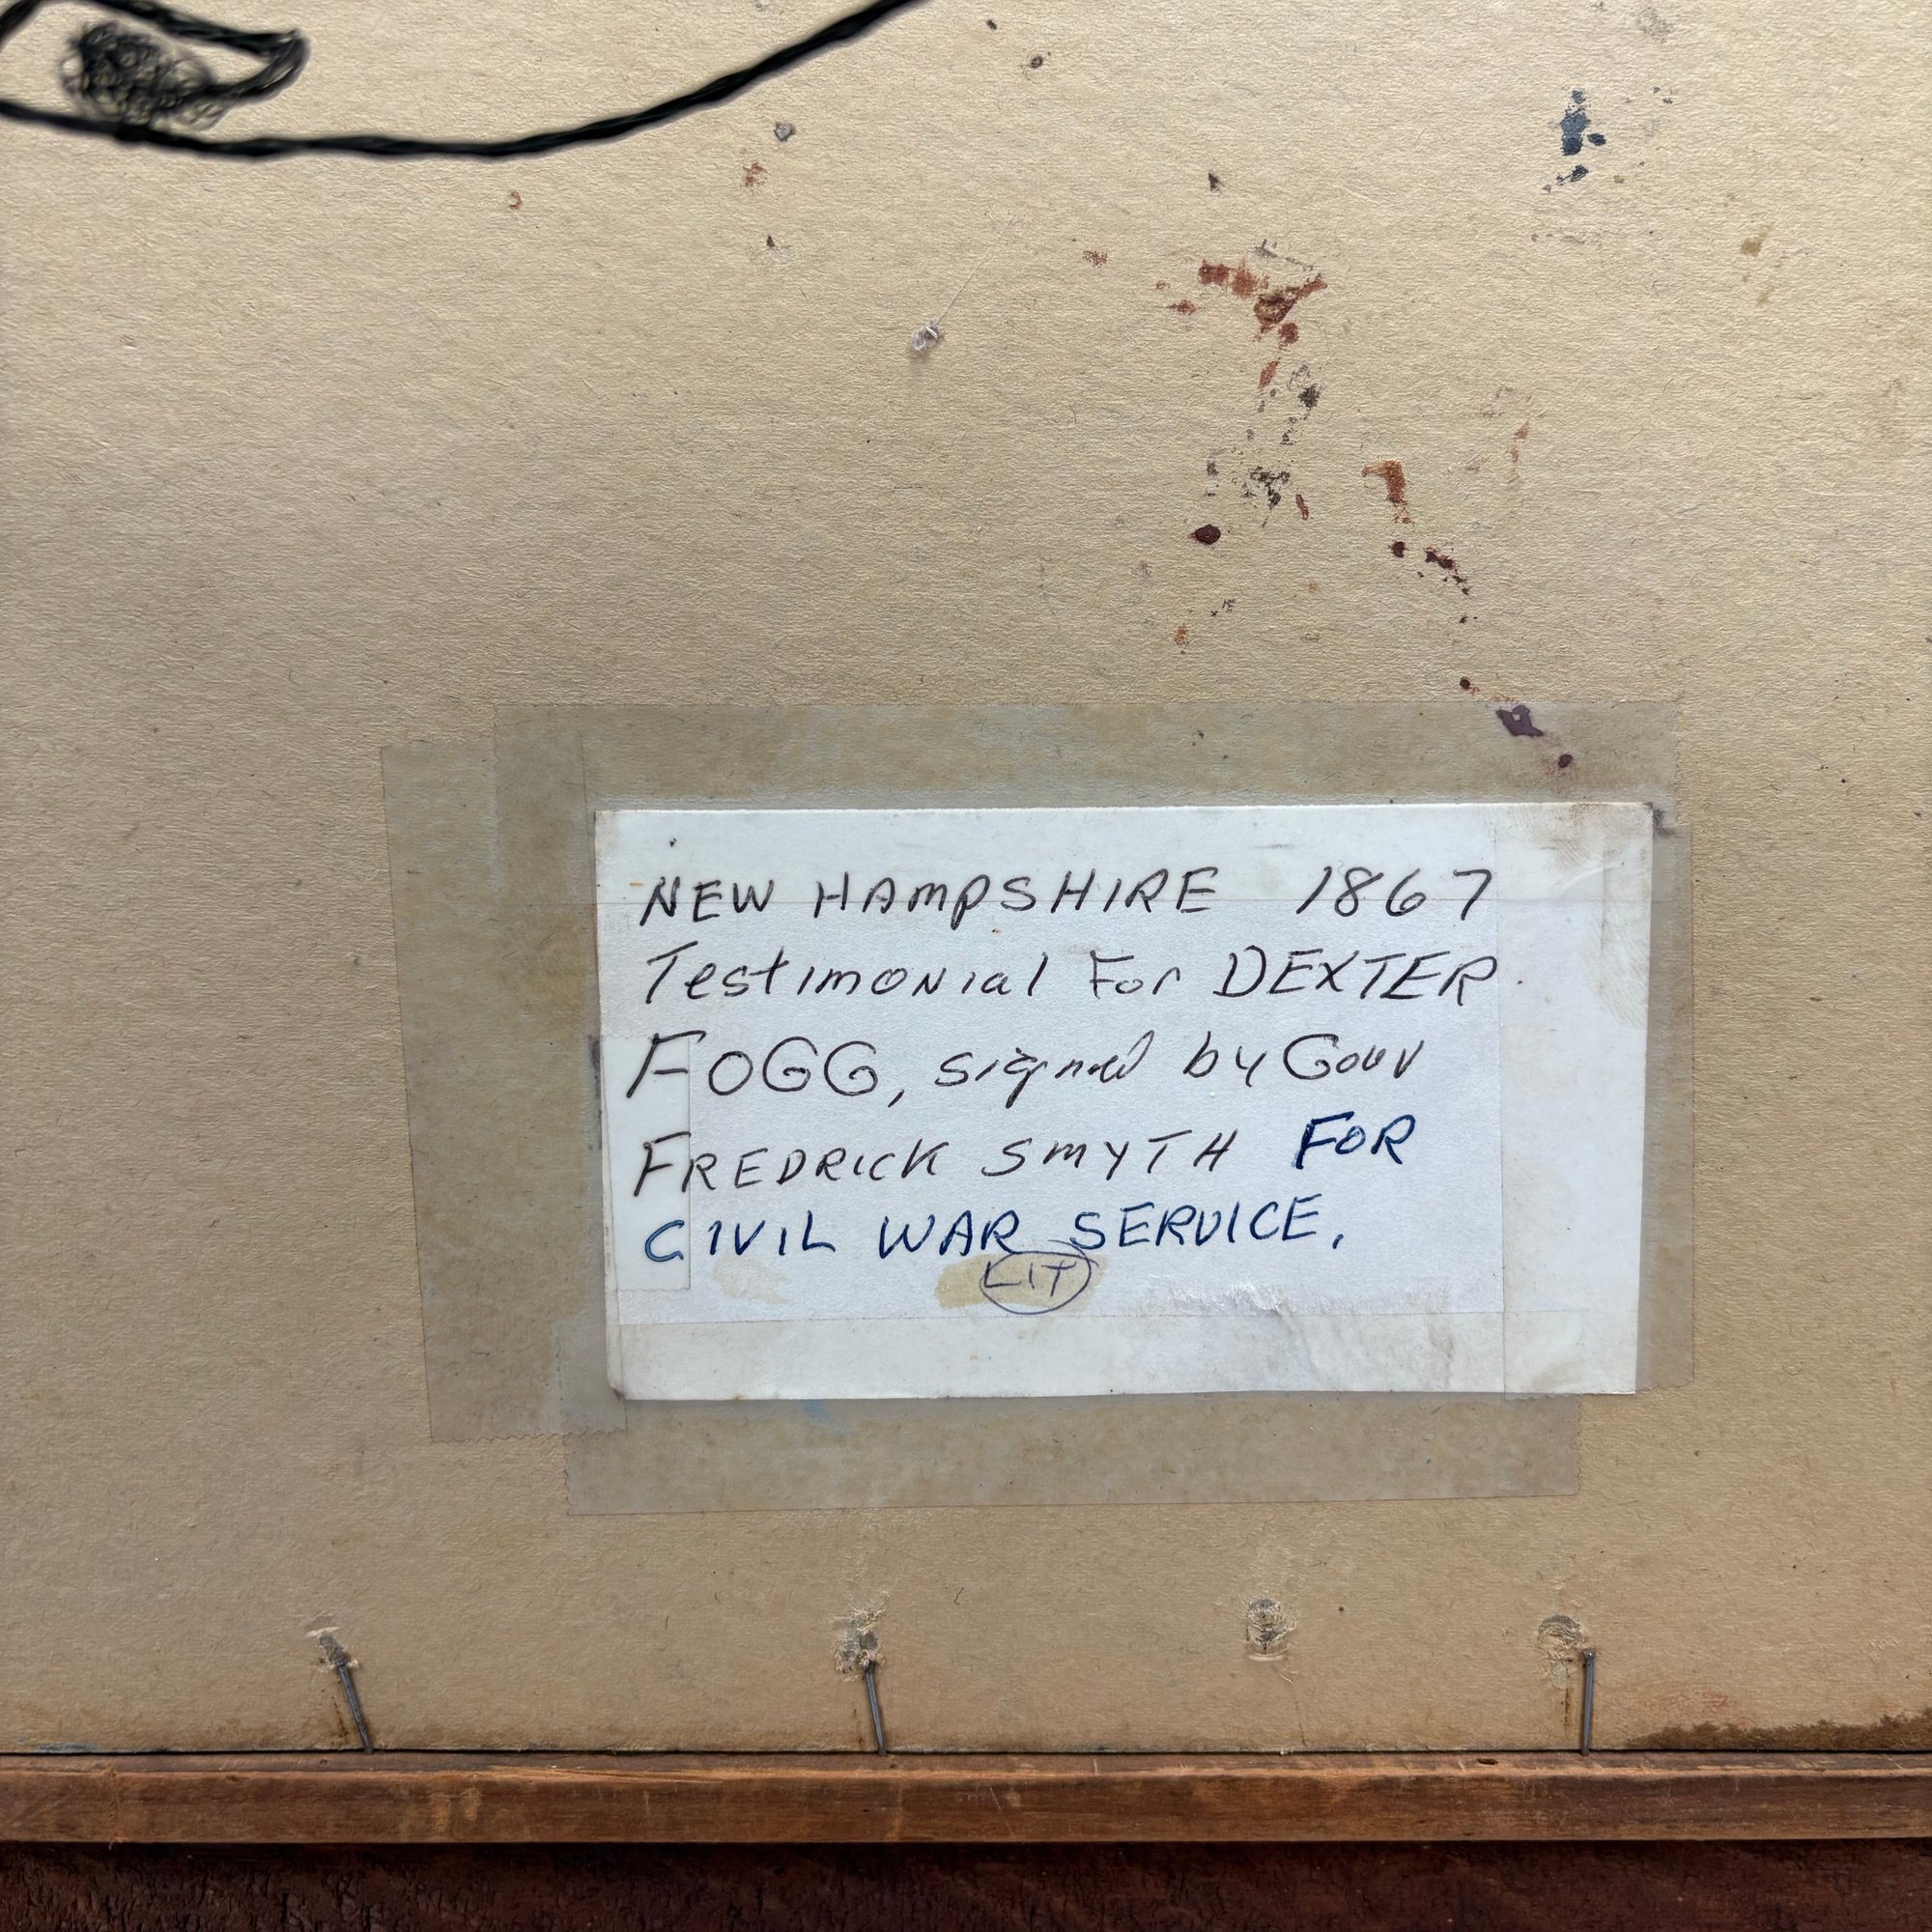 NEW HAMPSHIRE 1867
Testimonial For DEXTER
FOGG, signed by Gouv
FREDRICK SMYTH FOR
CIVIL WAR SERVICE.
LIT